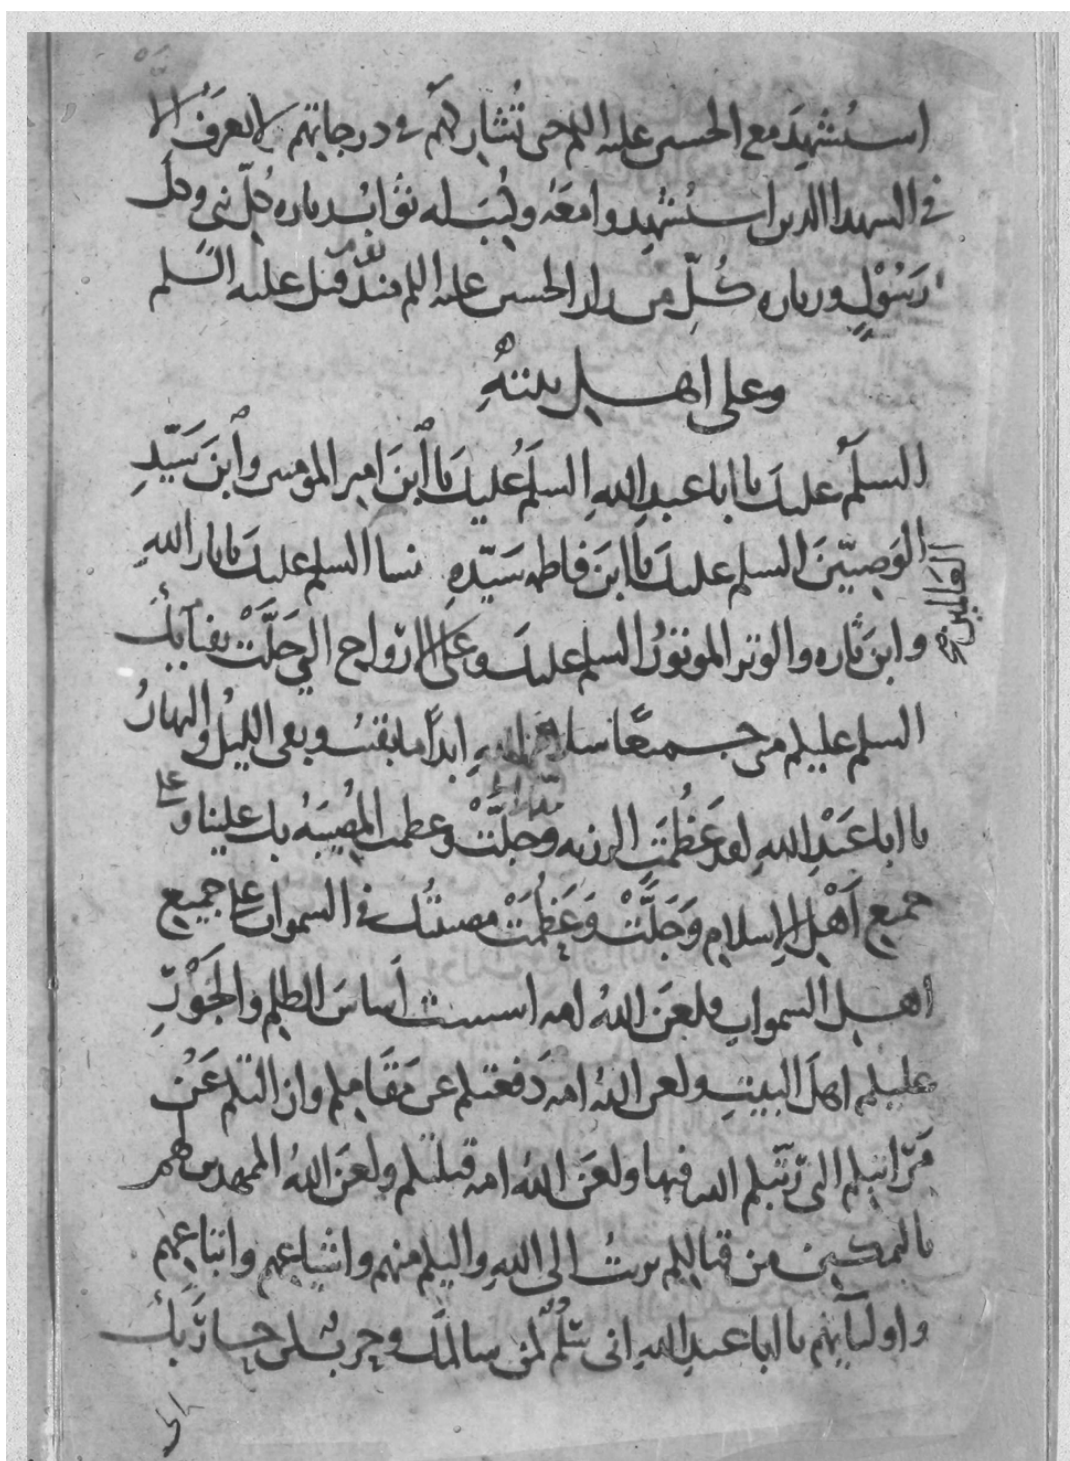 استُشهِدَ مع الحسين عليه السلم حتى تُشاركهم في درجاتهم لا تعرَفُ الا
في الشهدا الذين استُشهِدوا معَهُ وكُتِبَ له ثوابُ زياره كُلّ نبي وكل
رسُوْلٍ وزياره كُلّ من زار الحسين عليه السلم منذُ يوم قتل عليه السَّلم
وعلى اهل بيتهِ
السلمُ عليكَ يا ابا عبدِ اللهِ السلمُ عليكَ يا اَبنَ امير المومنين وأبنَ سَيّدِ
الوَصِيّينَ السلم عليكَ يا ابنَ فاطمه سَيّدهِ نسا السلم عليكَ يا ثار اللهِ
العَالمين صح
وابنَ ثاره والوتر الموتورُ السلم عليكَ وعَلى الارواحِ التي حَلَّتْ بفنآيِكَ
السلم عليكم مني جميعًا سلام اللهِ ابداً ما بقيتُ وبقي الليلُ والنهارُ
يا ابا عَبْدِ اللهِ لقد عَظُمَتِ الرزيه وجلَّتْ وعظمت المُصِيبَهُ بك علينا وعلى
جميع اَهْلِ الاِسلامِ وَجَلَّتْ وَعَظُمَتْ مصيبتُك في السموات على جميع
اهل السمواتِ فلعَنَ اللهُ امه اسست اَساسَ الظلمِ والجَوْرِ
عليكم اهلَ البيتِ ولعن اللهُ امه دَفعتكم عن مَقَامِكم وازالتكم عَنْ
مَرَاتبكم التي رَتّبكم الله فيها ولعَنَ اللهُ امه قتلتكم ولعَنَ اللهُ الممهدين لهم
بالتمكين من قتالكم برئتُ الى اللهِ واليكم منهم واشياعِهم واتباعِهم
واوليآئِهم يا ابا عبدِ اللهِ اني سِلْمٌ لمن سالمك وحربٌ لمن حاربك